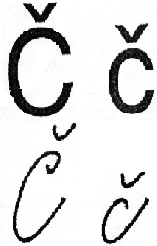 Č č
Č č